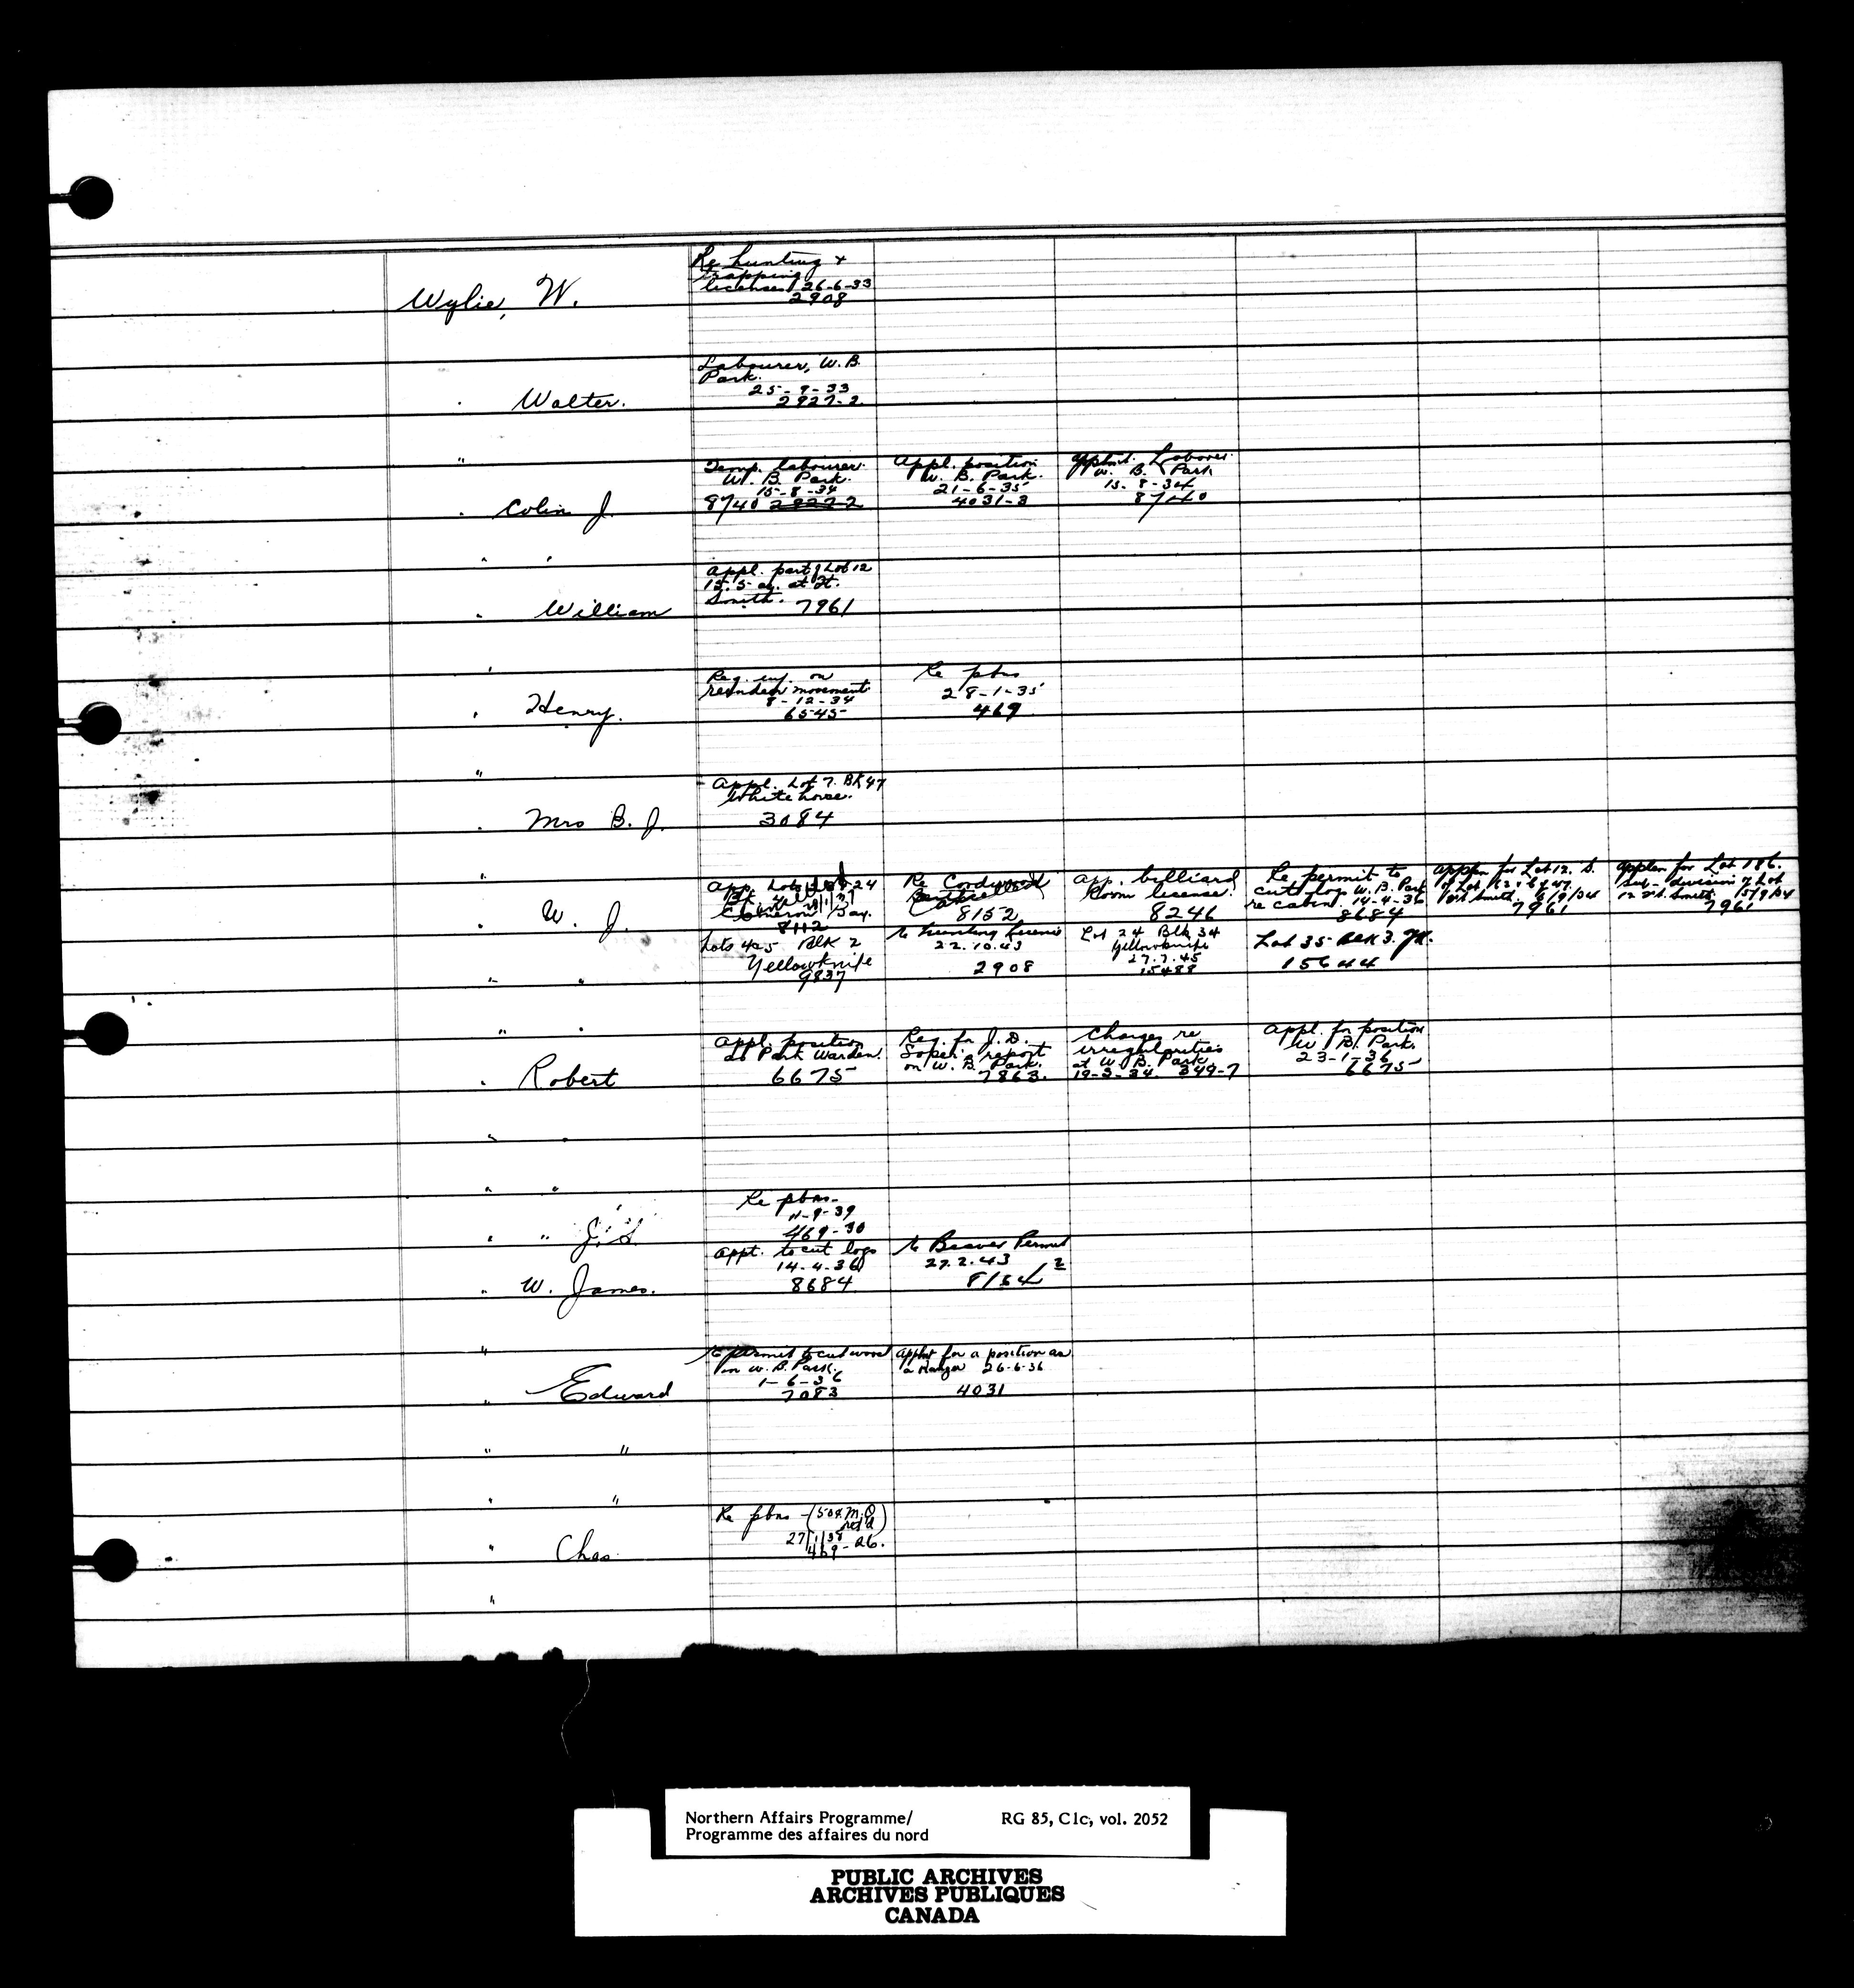 Wylie, W.
Re hunting +
trapping
licenses 26-6-33
2908
. Walter.
Labourer, W. B.
Park.
25-9-33
2927-2
"
. Colin J.
Temp. labourer
W. B. Park.
15-8-34
8740 2927-2
Appl. position
W. B. Park.
21-6-35
4031-3
Appmt. Labourer
W. B. Park
15-8-34
8740
" "
. William
Appl. part of Lot 12
15.5 ac. at Ft.
Smith. 7961
"
. Henry.
Req. inf. on
reindeer movement
8-12-34
6545
Re pbns
28-1-35
469
"
. Mrs B. J.
Appl. Lot 7. Bk 47
Whitehorse.
3084
"
. W. J.
App. Lots 24
Cameron Bay.
8112
Re Cordwood
8152
App. billiard
Room license.
8246
Re permit to
cut logs W. B. Park
re cabin. 14-4-36
8684
Appln for Lot 12. S.
of Lot
Ft. Smith 6/9/34
7961
Appln for Lot 186.
sub-division of Lot
12 Ft. Smith 15/9/34
7961
" "
Lots 4 & 5 Blk 2
Yellowknife
9837
Re hunting licence
22.10.43
2908
Lot 24 Blk 34
Yellowknife
27.7.45
15488
Lot 35 Blk 3. YK.
15644
" "
. Robert
Appl. position
as Park Warden.
6675
Req. for J. D.
Soper's report
on W. B. Park.
7863.
Charges re
irregularities
at W. B. Park
19-3-34. 349-7
Appl. for position
W. B. Park.
23-1-36
6675
" "
" "
" " J. S.
Re pbns-
11-9-39
469-30
" W. James.
Appt. to cut logs
14-4-36
8684
Re Beaver Permit
27.2.43
8184 2
"
" Edward
Re permit to cut wood
in W. B. Park.
1-6-36
7083
Applnt for a position as
a Ranger 26-6-36
4031
" "
" "
" Chas.
Re pbns - (50¢ M.O
ret'd)
27/1/38
469-26.
"
Northern Affairs Programme/ RG 85, C1c, vol. 2052
Programme des affaires du nord
PUBLIC ARCHIVES
ARCHIVES PUBLIQUES
CANADA